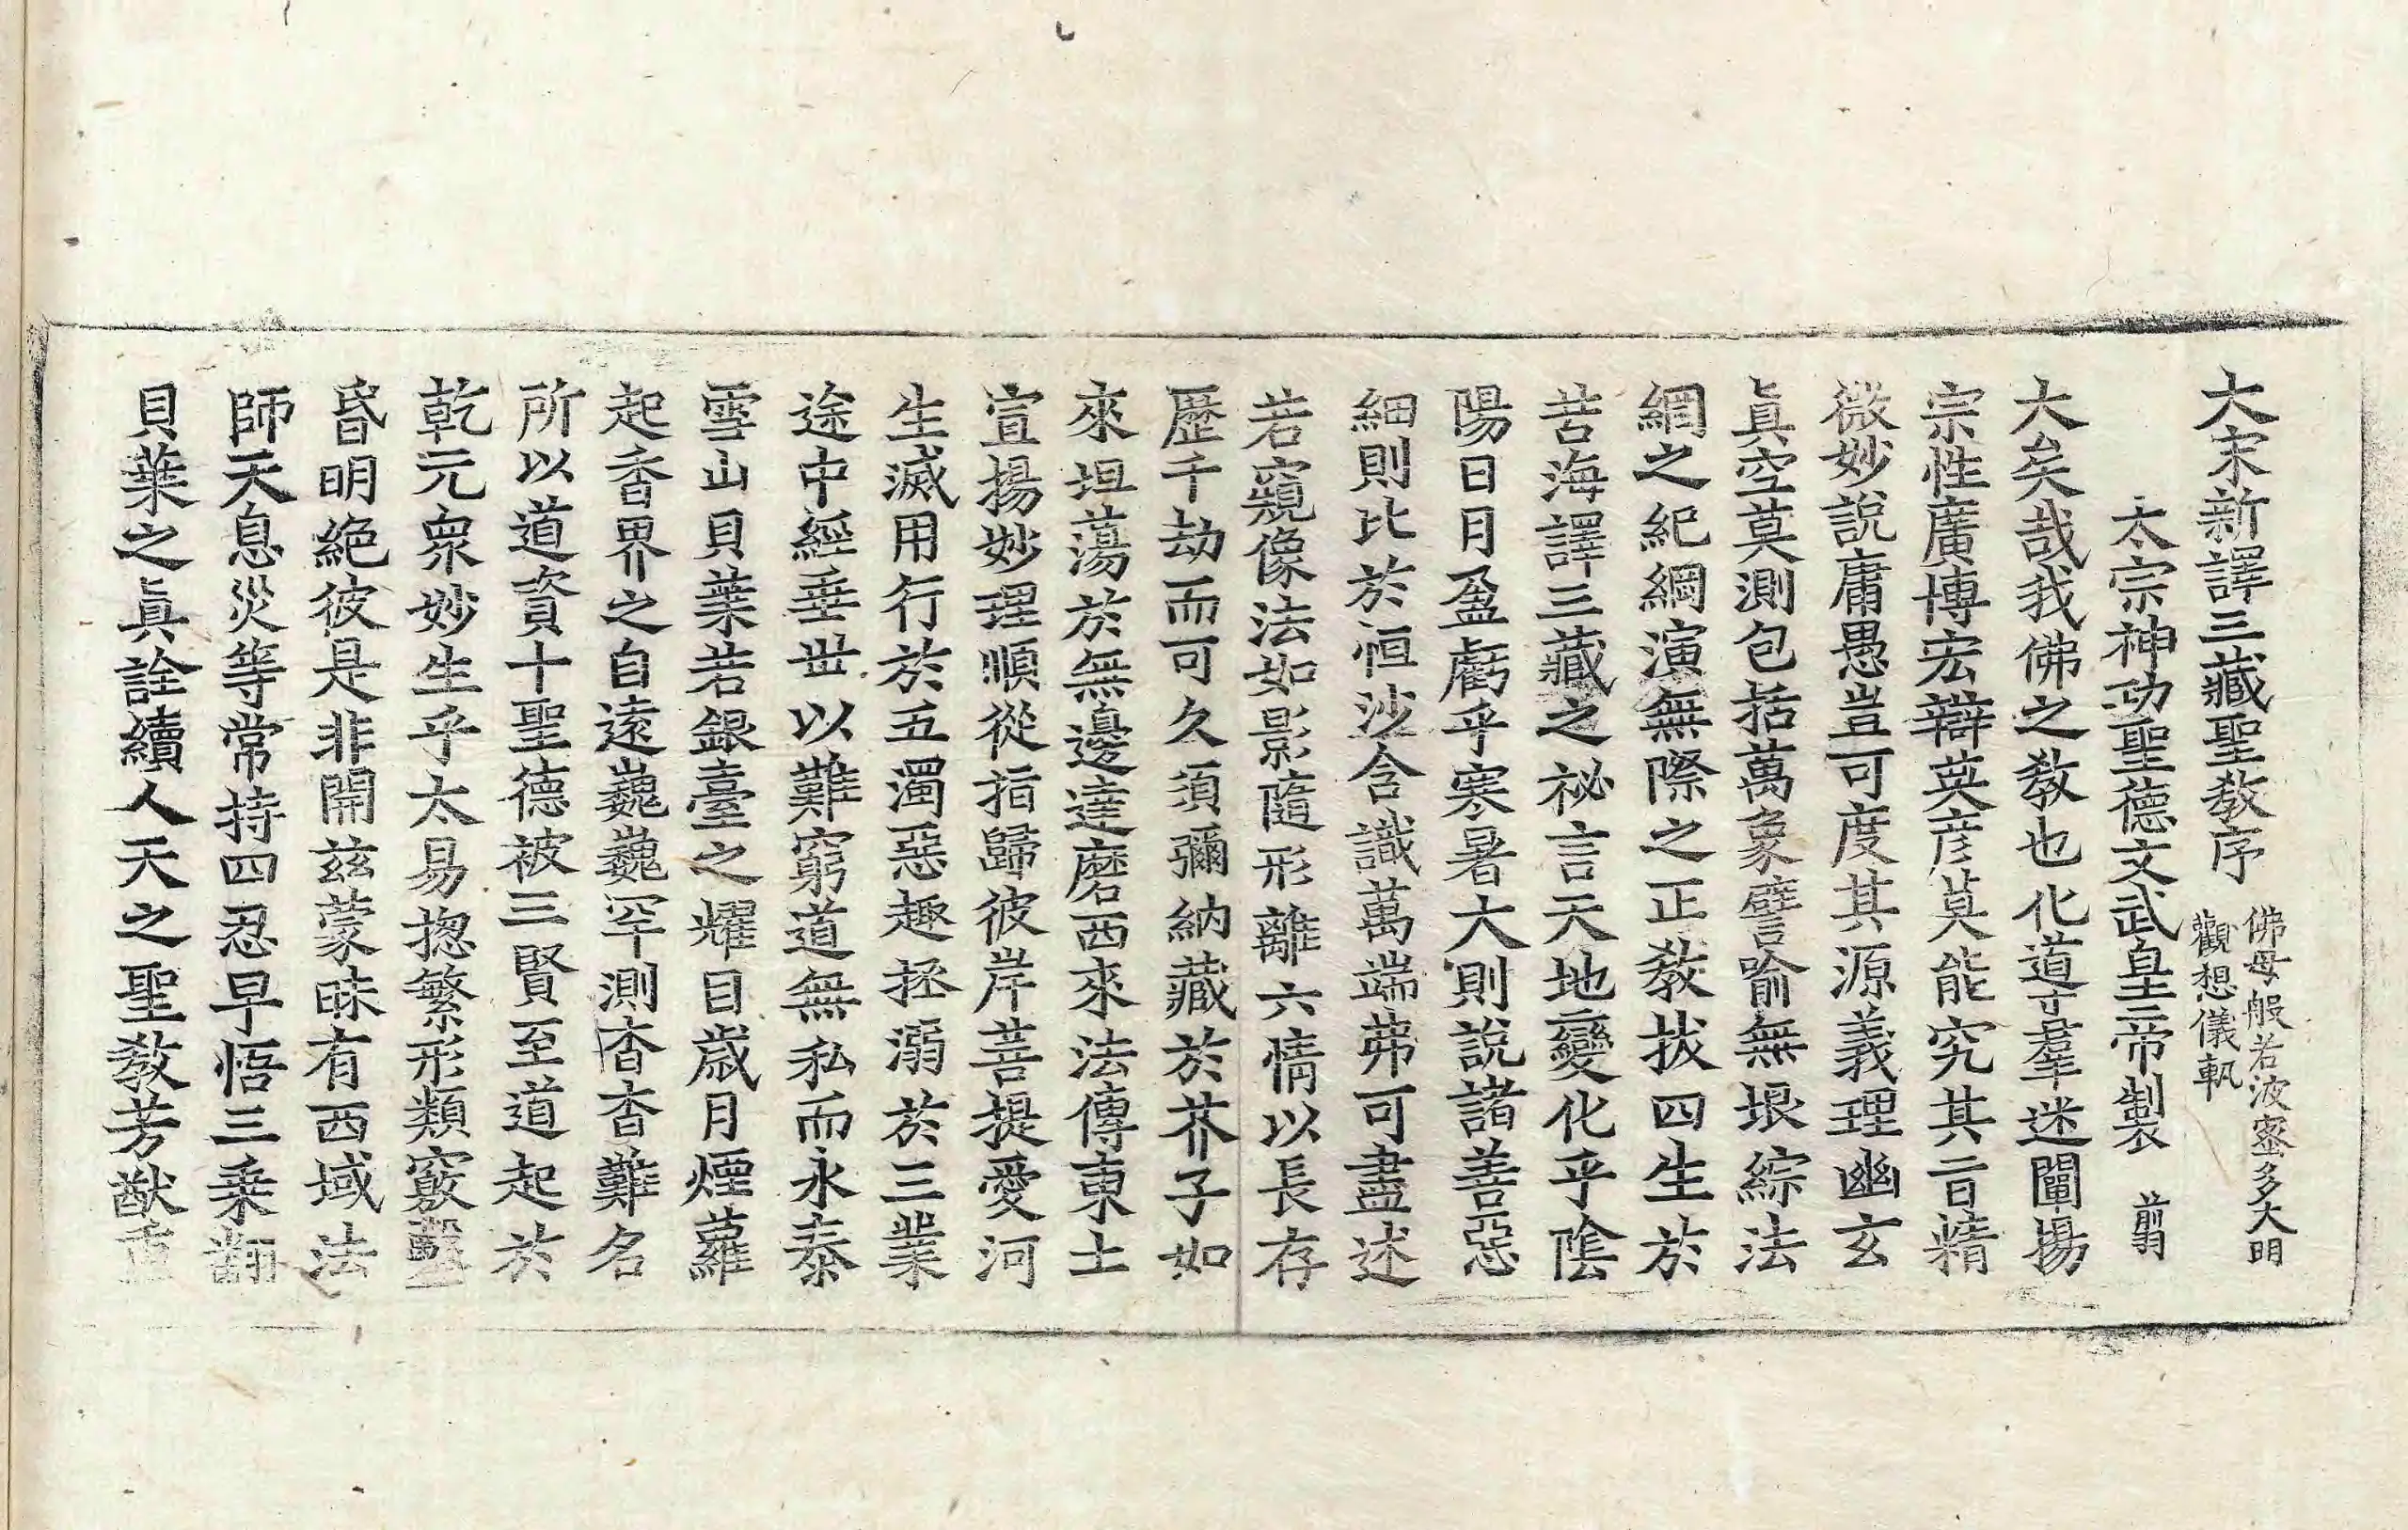 大宋新譯三藏聖教序 佛母般若波蜜多大明觀想儀軌
太宗神功聖德文武皇帝製 剪
大矣哉我佛之教也化道羣迷闡揚
宗性廣博宏辯英彦莫能究其旨精
微妙說庸愚豈可度其源義理幽玄
眞空莫測包括萬象譬喻無垠綜法
網之紀綱演無際之正教拔四生於
苦海譯三藏之祕言天地變化乎陰
陽日月盈虧乎寒暑大則說諸善惡
細則比於恒沙含識萬端弗可盡述
若窺像法如影隨形離六情以長存
歷千劫而可久須彌納藏於芥子如
來坦蕩於無邊達磨西來法傳東土
宣揚妙理順從指歸彼岸菩提愛河
生滅用行於五濁惡趣拯溺於三業
途中經垂世以難窮道無私而永泰
雪山貝葉若銀臺之耀目歲月煙蘿
起香界之自遠巍巍罕測杳杳難名
所以道資十聖德被三賢至道起於
乾元衆妙生乎太易揔繁形類竅鑿
昏明絶彼是非開兹蒙昧有西域法
師天息災等常持四忍早悟三乘翻
貝葉之眞詮續人天之聖教芳猷重